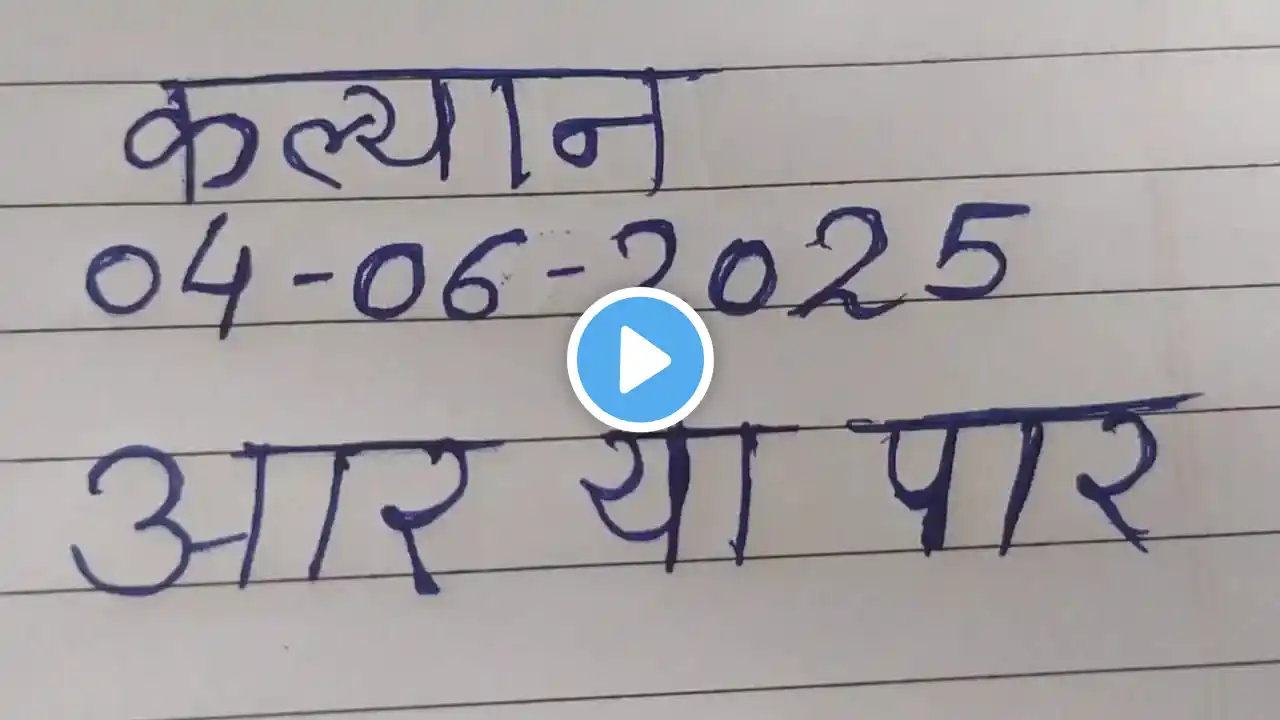 कल्यान
04-06-2025
आर या पार